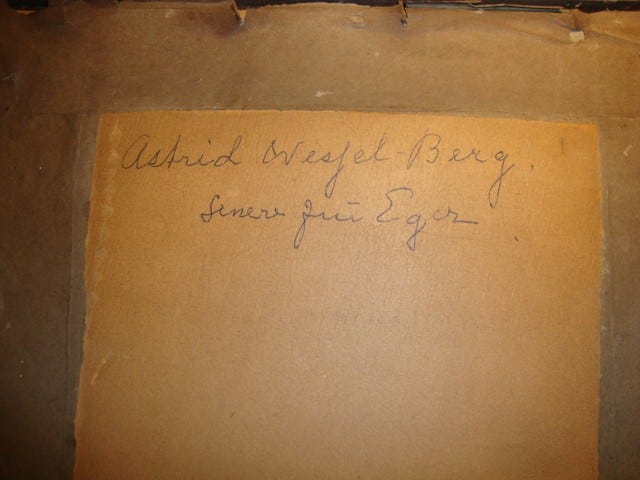 Astrid Wessel-Berg.
senere fru Eger